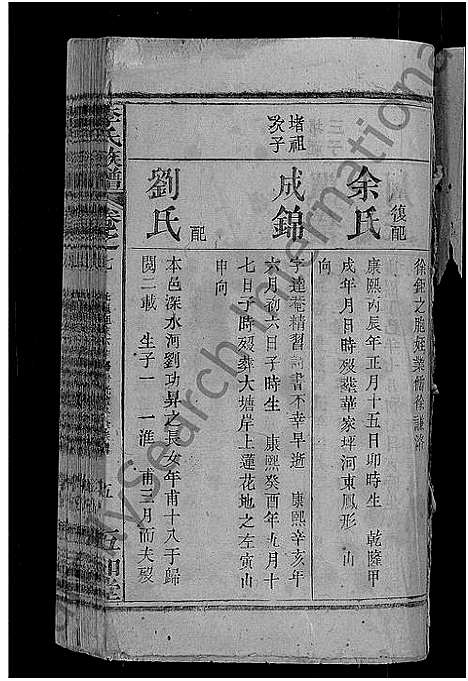 徐鉅之胞姪業儒徐謙洛
復配
余氏
康熙丙辰年正月十五日卯時生 乾隆甲
戌年月日時歿葬華家坪河東鳳形 山
向
堵祖
次子
成錦
字達菴精習詩書不幸早逝 康熙辛亥年
六月初六日子時生 康熙癸酉年九月十
七日子時歿葬大塘岸上蓮花地之左寅山
申向
配
劉氏
本邑深水河劉功昇之長女年甫十八于歸
閱二載 生子一 一淮 甫三月而夫歿
李氏族譜
卷之
五
MySearch International